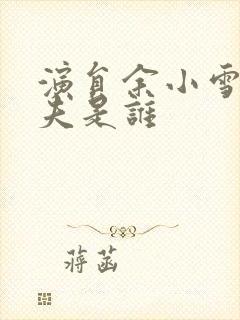 演員余小雪
夫是誰
蔣菡